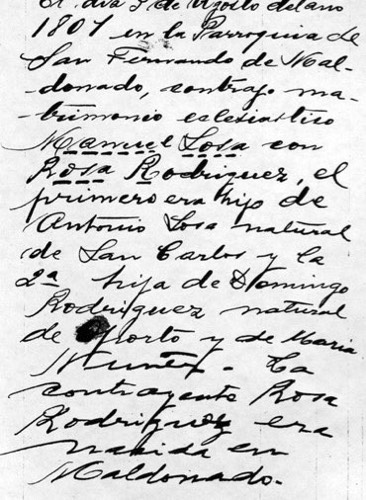 El dia 9 de Agosto del año
1801 en la Parroquia de
San Fernando de Mal-
-donado, contrajo ma-
-trimonio eclesiastico
Manuel Sosa con
Rosa Rodriguez, el
primero era hijo de
Antonio Sosa natural
de San Carlos y la
2ª hija de Domingo
Rodriguez natural
de Porto y de Maria
Nuñez. - La
contrayente Rosa
Rodriguez era
nacida en
Maldonado.